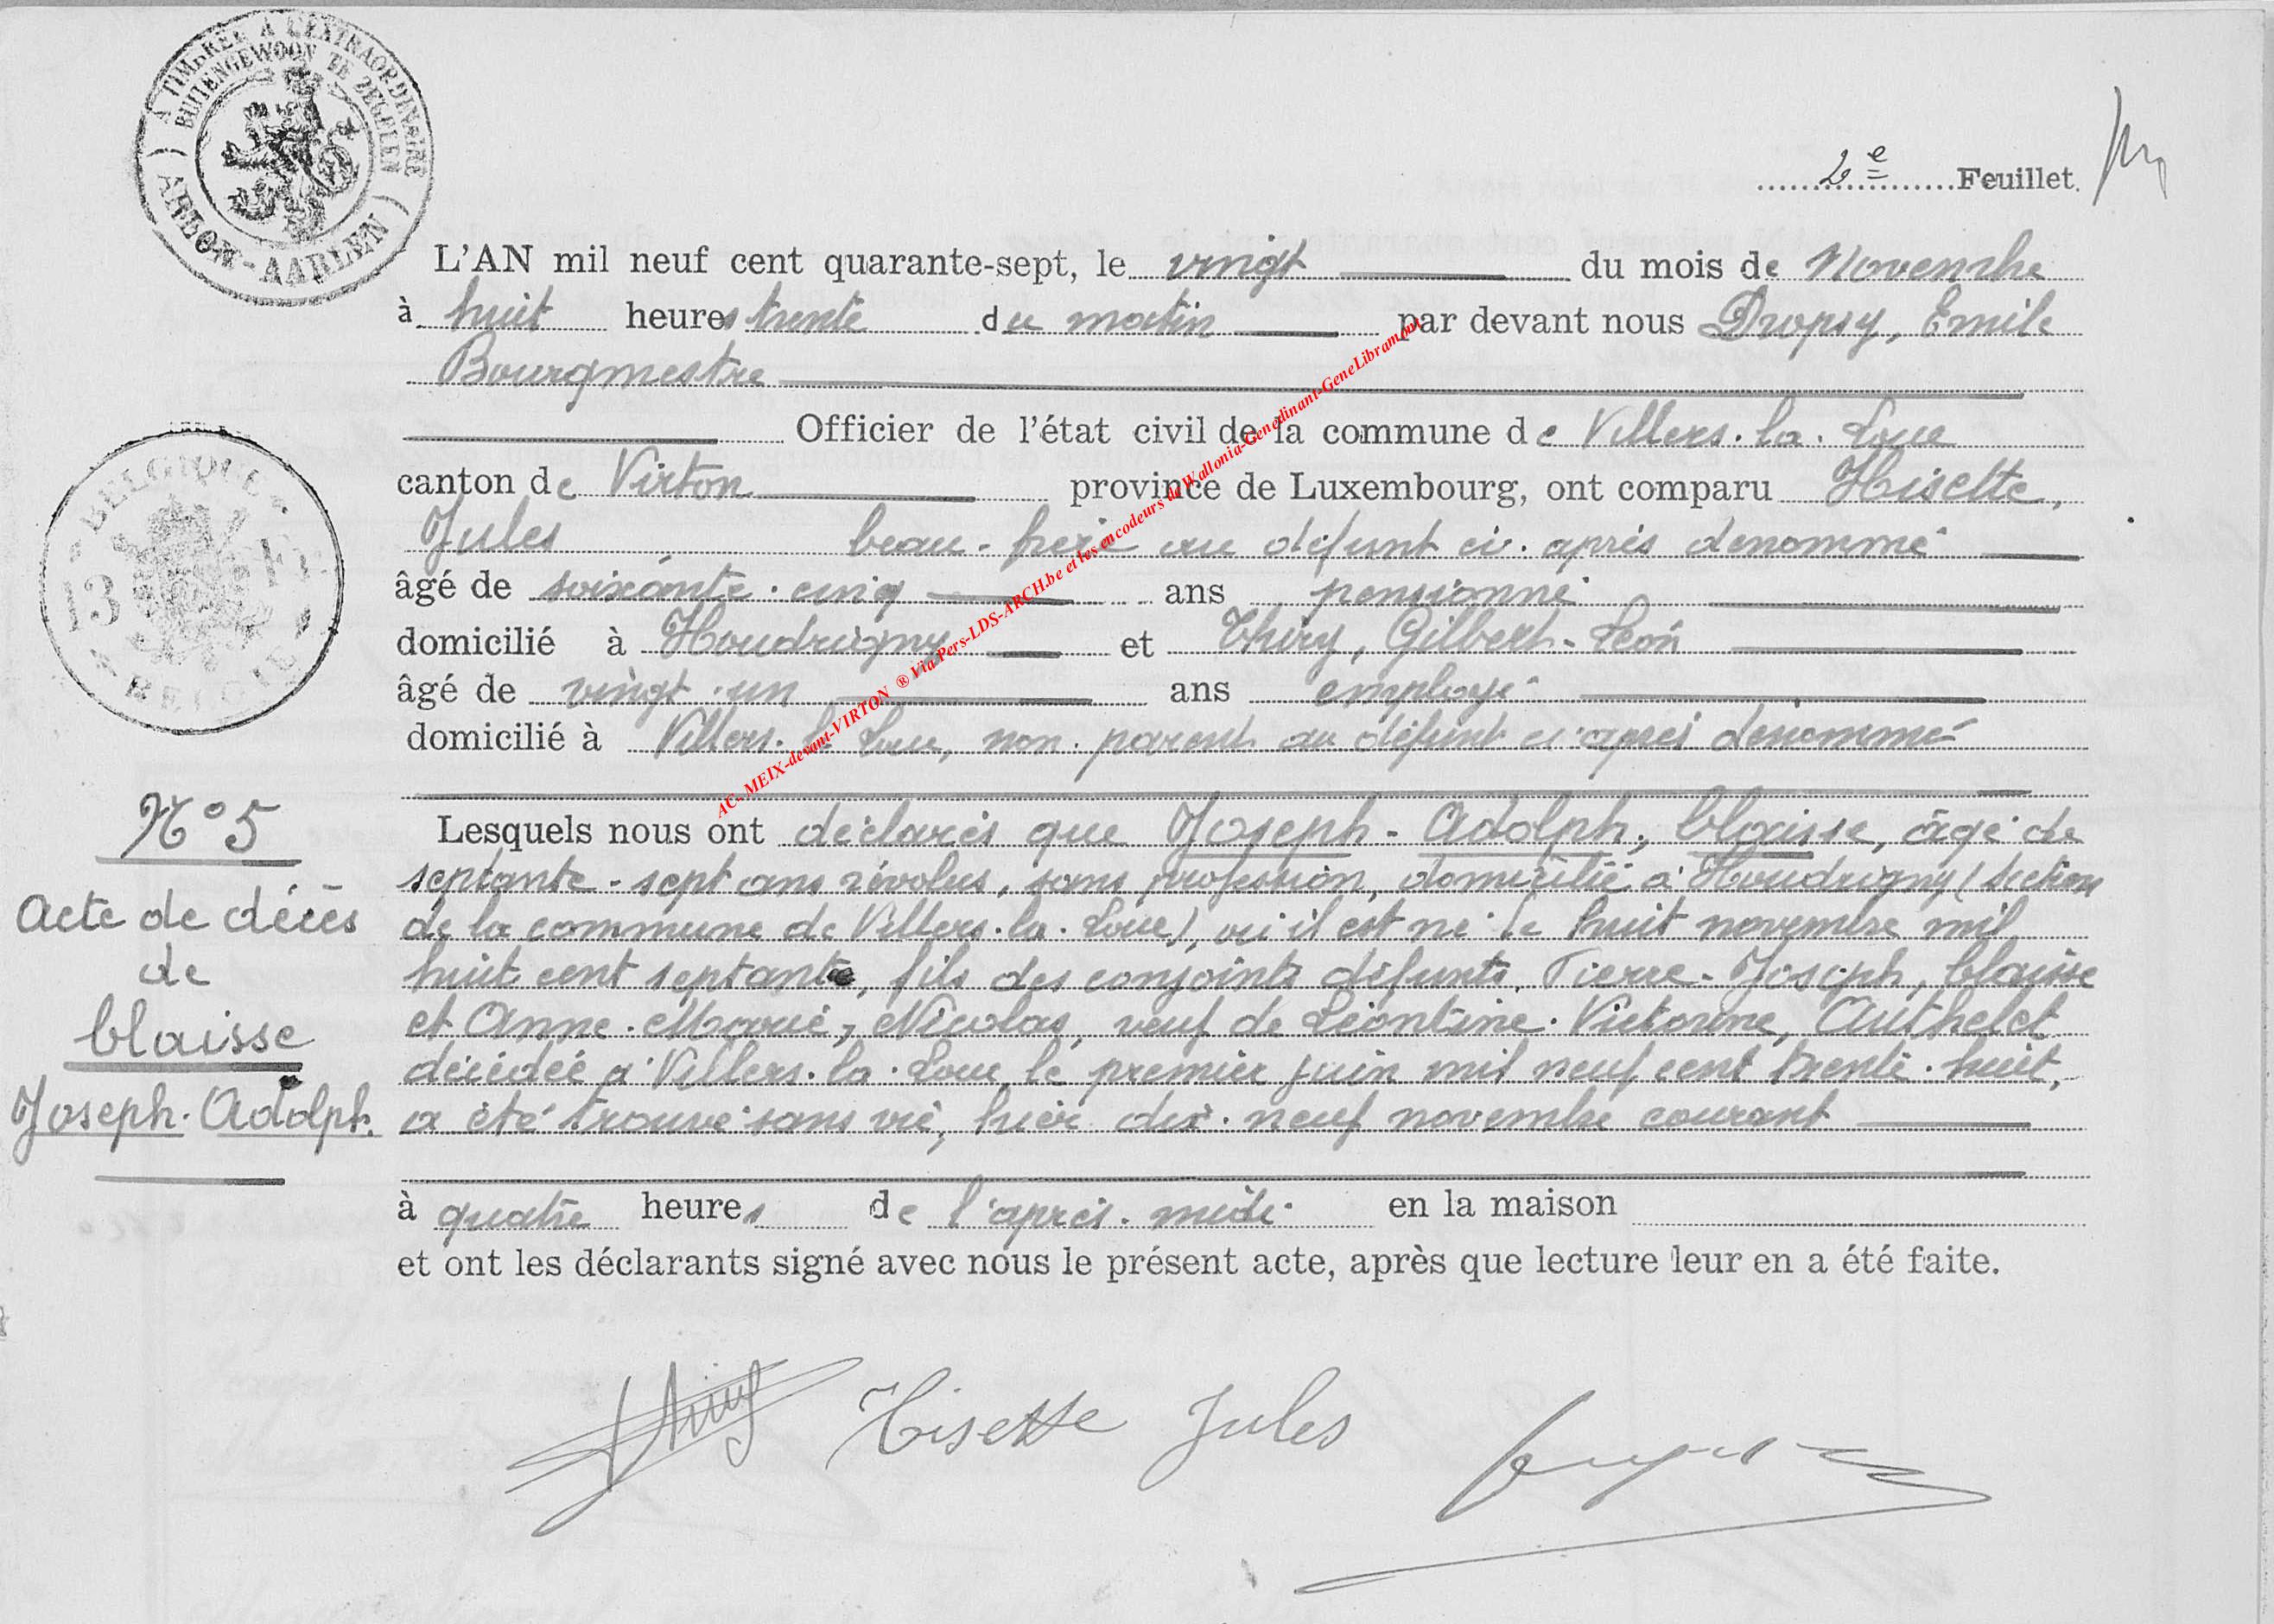 A TIMBRÉE A L'EXTRAORDINAIRE
BUITENGEWOON TE ZEGELEN
ARLON-AARLEN
2e Feuillet.
L'AN mil neuf cent quarante-sept, le vingt du mois de Novembre
à huit heures trente du matin par devant nous Dropsy, Emile
Bourgmestre
Officier de l'état civil de la commune de Villers-la-Loue
canton de Virton province de Luxembourg, ont comparu Hisette,
Jules beau-frère au défunt ci-après dénommé
âgé de soixante-cinq ans pensionné
domicilié à Houdrigny et Thiry, Gilbert-Léon
âgé de vingt-un ans employé
domicilié à Villers-la-Loue, non-parent au défunt ci-après dénommé
Lesquels nous ont déclarés que Joseph-Adolph, Claisse, âgé de
septante-sept ans révolus, sans profession, domicilié à Houdrigny (section
de la commune de Villers-la-Loue), où il est né le huit novembre mil
huit cent septante, fils des conjoints défunts, Pierre-Joseph, Claisse
et Anne-Marie, Nicolas, veuf de Léontine-Victorine, Authelet
décédée à Villers-la-Loue le premier juin mil neuf cent trente-huit,
a été trouvé sans vie, hier dix-neuf novembre courant
à quatre heures de l'après-midi en la maison
et ont les déclarants signé avec nous le présent acte, après que lecture leur en a été faite.
Hisette Jules
BELGIQUE
13
BELGIE
N° 5
Acte de décès
de
Claisse
Joseph-Adolph.
AC. MEIX-devant-VIRTON ® Via Pers-LDS-ARCH.be et les encodeurs de Wallonia-Genedinant-GeneLibramont